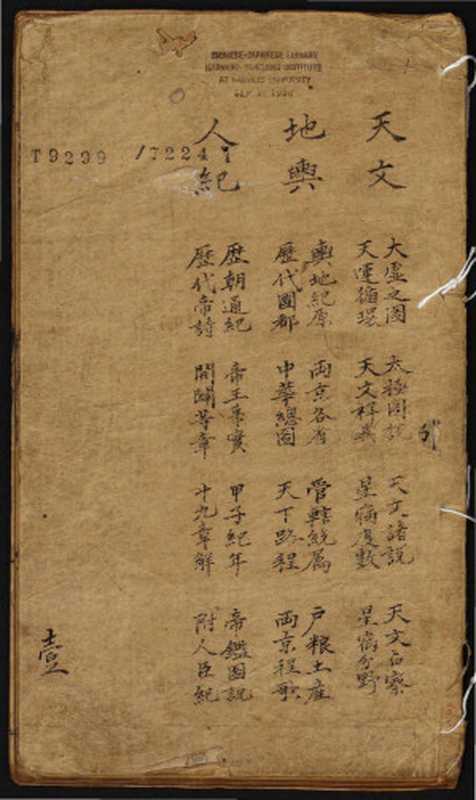 CHINESE-JAPANESE LIBRARY
HARVARD-YENCHING INSTITUTE
AT HARVARD UNIVERSITY
T9299 /722
天文
大虛之圖 太極圖說 天文諸說 天文占察
天運循環 天文釋義 星宿度數 星宿分野
地輿
輿地紀原 両京各省 管轄統属 户粮土産
歷代國都 中華總圖 天下路程 両京程歌
人紀
歷朝通紀 帝王事實 甲子紀年 帝鑑圖說
歷代帝 開闢等章 十九章解 附人臣紀
壹